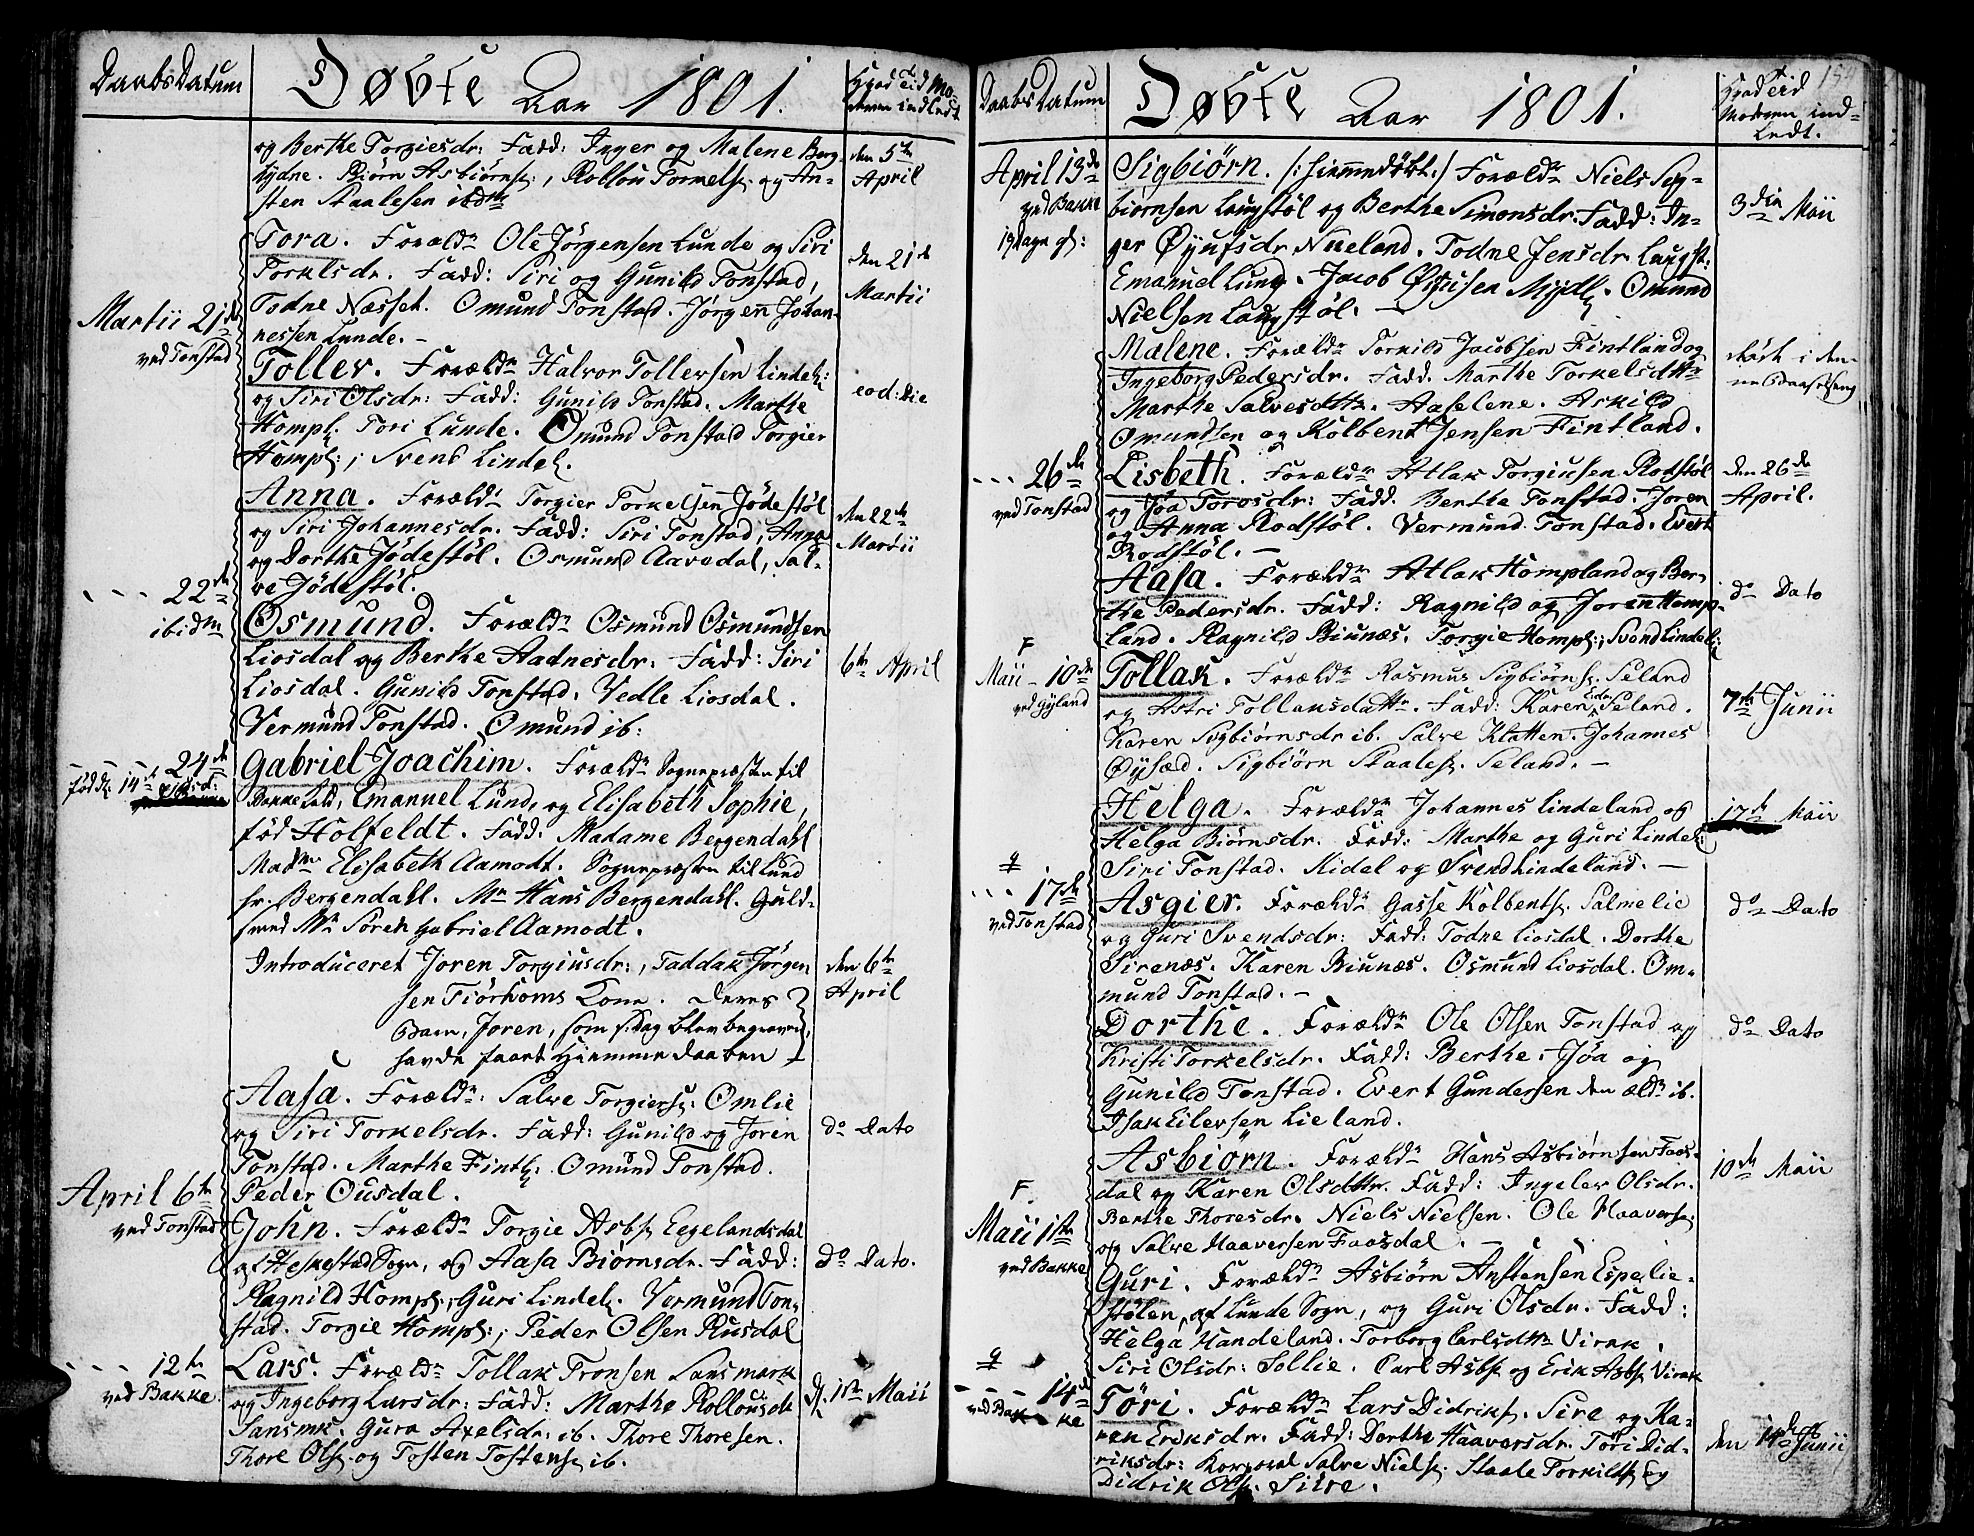 DaabsDatum
Døbte Aar 1801.
Hvad Tid Mo-
deren indledt
og Berthe Torgiesdr: Fadd: Inger og Malene Berg-
lydne. Biørn Asbiørns:, Rollou Tornels: og An-
sten Staalesen ibdm
den 5te
April
Martii 21de
ved Tonstad
Tora. Foræld: Ole Jörgensen Lunde og Siri
Torkelsdr. Fadd: Siri og Gunild Tonstad,
Todne Nesset. Omund Tonstad. Jörgen Johan-
nessen Lunde. –
den 21de
Martii
Tollev. Foræld: Halvor Tollevsen Lindel:
og Siri Olsdr: Fadd: Gunild Tonstad. Marthe
Hompl. Tori Lunde. Omund Tonstad Torgier
Hompl:, Svend Lindel.
eod: Die
- - - 22de
ibidm
Anna. Foræld: Torgier Torkelsen Jödestöl
og Siri Johannesdr. Fadd: Siri Tonstad, Anna
og Dorthe Jödestöl. Osmund Aavedal, Sal-
ve Jödestöl.
den 22de
Martii
Osmund. Foræld: Osmund Osmundsen
Liosdal og Berthe Aadnesdr. Fadd: Siri
Liosdal. Gunild Tonstad. Vedle Liosdal.
Vermund Tonstad. Omund ib:
6te April
- - 24de
fød d. 14de
Gabriel Joachim. Foræld: Sognepræsten til
Bakke Kald, Emanuel Lund, og Elisabeth Sophie,
fød Holfeldt. Fadd. Madame Bergendahl
Madme Elisabeth Aamodt. Sognepræsten til Lund
Hr. Bergendahl. Mr Hans Bergendahl. Guld-
smed Mr Sören Gabriel Aamodt.
Introduceret Joren Torgiusdr:, Taddak Jörgen-
sen Tiörhoms Kone. Deres
Barn, Joren, som s. Dag blev begraven,
havde faaet Hiemmedaaben
den 6te
April
April 6te
ved Tonstad
Aasa. Foræld: Salve Torgiers: Omlie
og Siri Torkelsdr. Fadd: Gunild og Joren
Tonstad. Marthe Fintl: Omund Tonstad.
Peder Ousdal.
do Dato
John. Foræld: Torgie Asbs: Eegelandsdal
af Heskestad Sogn, og Aasa Biørnsdr. Fadd:
Ragnild Hompl:, Guri Lindel. Vermund Ton-
stad. Torgie Hompl:, Peder Olsen Rusdal
do Dato.
- - - 12te
ved Bakke
Lars. Foræld: Tollak Tronsen Sansmark
og Ingeborg Larsdr: Fadd: Marthe Rollousdr
Sansmk. Guro Axelsdr: ib. Thore Thoresen.
Thore Ols: og Tosten Tostens: ib.
d. 1ste Maii
DaabsDatum
Døbte Aar 1801.
Hvad Tid
Moderen ind-
ledt.
154
April 13de
ved Bakke
Sigbiörn. /: Hiemmedöbt :/ Foræld: Niels Sig-
biörnsen Laugstöl og Berthe Simonsdr. Fadd: In-
ger Øyufsdr Nueland. Todne Jensdr. Laugst:
Emanuel Lund. Jacob Øyusen Mydl. Omund
Nielsen Laugstöl. –
3die Maii
Malene. Foræld: Torkild Jacobsen Fintland og
Ingeborg Pedersdr. Fadd. Marthe Torkelsdttr
Marthe Salvesdttr. Aaselene. Askild
Omundsen og Kolbent Jensen Fintland.
- - - 26de
ved Tonstad
Lisbeth. Foræld: Atlak Torgiusen Rodstöl
og Jöa Torosdr: Fadd. Berthe Tonstad. Joren
og Anna Rodstöl. Vermund Tonstad. Evert
Rodstöl. –
den 26de
April.
Aasa. Foræld: Atlak Hompland og Ber-
the Pedersdr. Fadd: Ragnild og Joren Homp-
land. Ragnild Biunæs. Torgie Hompl:, Svend Lindel:
do Dato
F
Maii – 10de
ved Gyland
Tollak. Foræld: Rasmus Sigbiörns: Seland
og Astri Tollausdattr. Fadd: Karen Seland.
Karen Sigbiörnsdr ib. Salve Klatten. Johannes
Øysæd. Sigbiörn Staales: Seland. –
7de Junii
- - - 17de
ved Tonstad
Helga. Foræld: Johannes Lindeland og
Helga Biørnsdr. Fadd: Marthe og Guri Lindel:
Siri Tonstad. Midel og Svend Lindeland. –
17de Maii
Asgier. Foræld: Gasse Kolbents: Salmelie
og Guri Svendsdr: Fadd: Todne Liosdal. Dorthe
Sirenæs. Karen Biunæs. Osmund Liosdal. Om-
mund Tonstad. –
do Dato
Dorthe. Foræld: Ole Olsen Tonstad og
Kristi Torkelsdr. Fadd: Berthe. Jöa og
Gunild Tonstad. Evert Gundersen den æld: ib.
Isak Eilevsen Lieland.
do Dato
F.
Maii 1ste
ved Bakke
Asbiörn. Foræld: Hans Asbiörnsen Faas-
dal og Karen Olsdttr. Fadd: Ingelev Olsdr.
Berthe Thoresdr. Niels Nielsen. Ole Haavers:
og Salve Haaversen Faasdal.
10de Maii
Guri. Foræld: Asbiørn Anstensen Espelie-
stölen, af Lunde Sogn, og Guri Olsdr. Fadd:
Helga Handeland. Torborg Carlsdttr Virak.
Siri Olsdr: Sollie. Carl Asbs: og Erik Asbs: Virak
- - - 14de
ved Bakke
Töri. Foræld: Lars Didriks: Sire og Ka-
ren Eriksdr. Fadd: Dorthe Haaversdr. Töri Did-
riksdr: Korporal Salve Niels: Staale Torkilds: og
Didrik Ols: Sire.
den 14de Junii